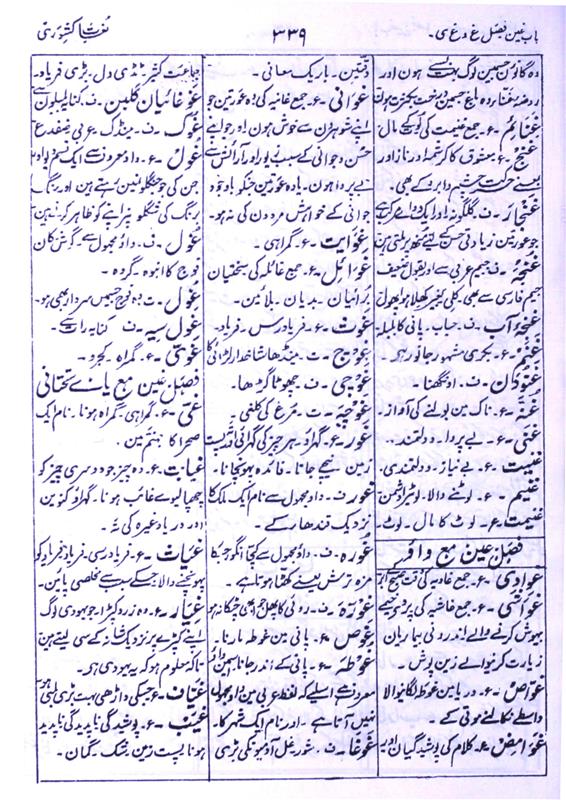 باب غین فصل غ و غ ی۔
۳۳۹
لغات کشوری
وہ گانوں حسین لوگ بستے ہوں اور
غنائم۔ ع۔ جمع غنیمت کی لوٹ کے مال
غنج۔ ع۔ معشوق کا کرشمہ اور ناز اور
یعنے حرکت چشم و ابرو کے بھی۔
جو عورتیں زیادتی حسن کے لئے منھ پر ملتی ہیں
غنچہ۔ ف۔ جیم عربی سے اور بقول ضعیف
جیم فارسی سے بھی۔ کلی بغیر کھلا ہوا پھول
غنچۂ آب۔ ف۔ حباب۔ پانی کا بلبلہ
غنم۔ ع۔ بکری مشہور جانور ہے۔
غنودن۔ ف۔ اونگھنا۔
غنہ۔ ع۔ ناک میں بولنے کی آواز۔
غنی۔ ع۔ بے پروا۔ دولتمند۔
غنیت۔ ع۔ بے نیاز۔ دولتمندی۔
غنیم۔ ع۔ لوٹنے والا۔ لوٹیرا دشمن
غنیمت۔ ع۔ لوٹ کا مال۔ لوٹ
فصل غین مع واؤ
غوادی۔ ع۔ جمع غادیہ کی
غواشی۔ ع۔ جمع غاشیہ کی پردے
بیہوش کرنے والے اندرونی بیماریاں
زیارت کرنیوالے زین پوش۔
غواص۔ ع۔ دریا میں غوطہ لگانیوالا
واسطے نکالنے موتی کے۔
غوامض۔ ع۔ کلام کی پوشیدگیاں اور
دقتیں۔ باریک معانی۔
غوانی۔ ع۔ جمع غانیہ کی وہ عورتیں جو
اپنے شوہروں سے خوش ہوں اور جو اپنے
حسن و جوانی کے سبب زیور اور آرائش سے
بے پروا ہوں۔ یا وہ عورتیں جنکو باوجود
جوانی کے خواہش مردوں کی نہ ہو۔
غوایت۔ ع۔ گمراہی۔
غوائل۔ ع۔ جمع غائلہ کی سختیاں
برائیاں۔ بدیاں۔ بلائیں۔
غوث۔ ع۔ فریادرس۔ فریاد۔
غوچ۔ ت۔ مینڈھا شاخدار لڑائی کا
غوچی۔ ف۔ چھوٹا گڑھا۔
غوچیہ۔ ت۔ مرغ کی کلغی۔
غور۔ ع۔ گہراؤ۔ ہر چیز کی گہرائی
زمین۔ نیچے جانا۔ فائدہ پہونچانا۔
غور۔ ف۔ واو مجہول سے نام ایک ملک کا
نزدیک قندھار کے۔
غورہ۔ ف۔ واؤ مجہول سے کچا انگور جسکا
مزہ ترش یعنے کھٹا ہوتا ہے۔
غوزہ۔ ف۔ روئی کا پھل
غوص۔ ع۔ پانی میں غوطہ مارنا۔
غوطہ۔ ع۔ پانی کے اندر جانا
معروف ہے اسلیے کہ لفظ عربی میں واو مجہول
نہیں آتا ہے۔ اور نام ایک شہر کا۔
غوغا۔ ف۔ شور غل آدمیونکی بڑی
جماعت کثیر۔ ٹڈی دل۔ بڑی فریاد۔
غوغائیان گلبن۔ ف۔ کنایہ بلبلوں سے
غوک۔ ف۔ مینڈک۔ عربی ضفدع
غول۔ ع۔ واو معروف سے ایک قسم
جن کی جو جنگلوں میں رہتے ہیں اور رنگ
برنگ کی شکلوں پر اپنے کو ظاہر کرتے ہیں
غول۔ ف۔ واؤ مجہول سے۔ گوش کان
فوج کا انبوہ۔ گروہ۔
غول۔ ت۔ وہ فوج جسمیں سردار بھی ہو۔
غول سیہ۔ ف۔ کنایہ رات ہے۔
غوی۔ ع۔ گمراہ۔ کجرو۔
فصل غین مع یائے تحتانی
غی۔ ع۔ گمراہی۔ گمراہ ہونا۔ نام ایک
صحرا کا جہنم میں۔
غیابت۔ ع۔ وہ چیز جو دوسری چیز کو
چھپالیوے غائب ہونا۔ گہراؤ کنویں
اور دریا وغیرہ کی تہ۔
غیاث۔ ع۔ فریاد رسی۔ فریاد۔ فریاد کو
پہونچنے والا۔ جسکے سبب سے مخلصی پائیں۔
غیار۔ ع۔ وہ زرد کپڑا۔ جو یہودی لوگ
اپنے کپڑے پر نزدیک شانہ کے سی لیتے ہیں
تاکہ معلوم ہو کہ یہ یہودی ہے۔
غیاف۔ ع۔ جسکی داڑھی بہت بڑی لمبی ہو
غیب۔ ع۔ پوشیدگی۔ ناپدیدگی۔ ناپدید
ہونا۔ پست زمین۔ شک۔ گمان۔